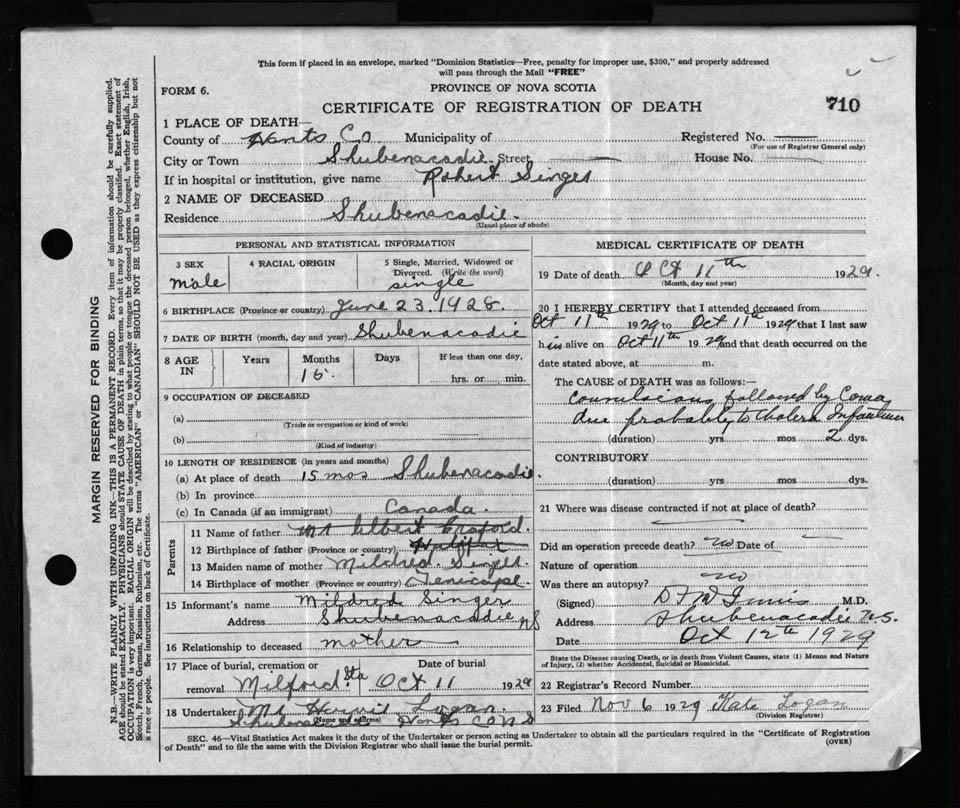 This form if placed in an envelope, marked "Dominion Statistics—Free, penalty for improper use, $300," and properly addressed
will pass through the Mail "FREE"
FORM 6.
PROVINCE OF NOVA SCOTIA
CERTIFICATE OF REGISTRATION OF DEATH
710
1 PLACE OF DEATH—
County of Hants Co Municipality of Registered No.
(For use of Registrar General only)
City or Town Shubenacadie Street House No.
If in hospital or institution, give name Robert Singer
2 NAME OF DECEASED
Residence Shubenacadie.
(Usual place of abode)
PERSONAL AND STATISTICAL INFORMATION
3 SEX male
4 RACIAL ORIGIN
5 Single, Married, Widowed or Divorced. (Write the word) single
6 BIRTHPLACE (Province or country) June 23. 1928.
7 DATE OF BIRTH (month, day and year) Shubenacadie
8 AGE IN Years Months Days If less than one day,
15. hrs. or min.
9 OCCUPATION OF DECEASED
(a)
(Trade or occupation or kind of work)
(b)
(Kind of industry)
10 LENGTH OF RESIDENCE (in years and months)
(a) At place of death 15 mos Shubenacadie.
(b) In province
(c) In Canada (if an immigrant) Canada.
Parents
11 Name of father Mr Albert
12 Birthplace of father (Province or country) Halifax
13 Maiden name of mother Mildred
14 Birthplace of mother (Province or country)
15 Informant's name Mildred Singer
Address Shubenacadie NS
16 Relationship to deceased mother
17 Place of burial, cremation or removal Milford Sta
Date of burial Oct 11 1929
18 Undertaker Mr Logan
(Name and address)
Shubenacadie Hants Co NS
MEDICAL CERTIFICATE OF DEATH
19 Date of death Oct 11th 1929.
(Month, day and year)
20 I HEREBY CERTIFY that I attended deceased from
Oct 11th 1929 to Oct 11th 1929 that I last saw
him alive on Oct 11th 1929 and that death occurred on the
date stated above, at m.
The CAUSE of DEATH was as follows:—
convulsions followed by Coma
due probably to Cholera Infantum
(duration) yrs. mos 2 dys.
CONTRIBUTORY
(duration) yrs. mos. dys.
21 Where was disease contracted if not at place of death?
Did an operation precede death? no Date of
Nature of operation
Was there an autopsy? no
(Signed) M.D.
Address Shubenacadie N.S.
Date Oct 12th 1929
State the Disease causing Death, or in death from Violent Causes, state (1) Means and Nature
of Injury, (2) whether Accidental, Suicidal or Homicidal.
22 Registrar's Record Number
23 Filed Nov 6 1929 Kate Logan
(Division Registrar)
SEC. 46—Vital Statistics Act makes it the duty of the Undertaker or person acting as Undertaker to obtain all the particulars required in the "Certificate of Registration
of Death" and to file the same with the Division Registrar who shall issue the burial permit.
(OVER)
MARGIN RESERVED FOR BINDING
N.B.—WRITE PLAINLY WITH UNFADING INK—THIS IS A PERMANENT RECORD. Every item of information should be carefully supplied.
AGE should be stated EXACTLY. PHYSICIANS should STATE CAUSE OF DEATH in plain terms, so that it may be properly classified. Exact statement of
OCCUPATION is very important. RACIAL ORIGIN will be described by stating to what people or tongue the deceased person belonged, whether English, Irish,
Scotch, French, German, Russian, Ruthenian, etc. The terms "AMERICAN" or "CANADIAN" SHOULD NOT BE USED as they express citizenship but not
a race or people. See instructions on back of Certificate.